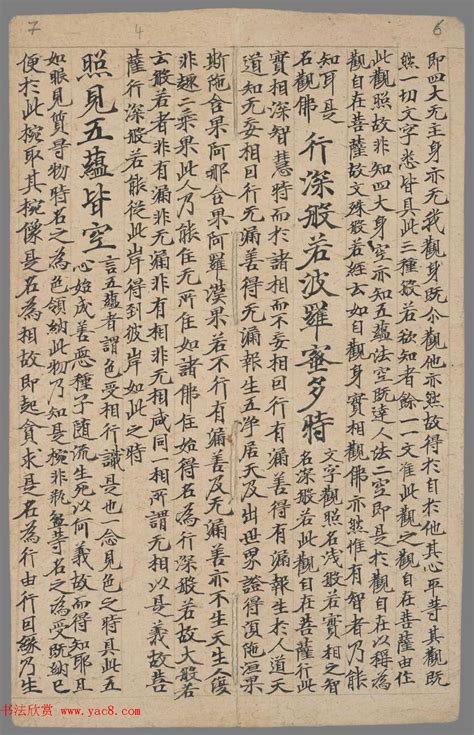 6
即四大无主身亦无我觀身既尒觀他亦然故得扵自扵他其心平等其觀既
然一切文字悉皆具此三種般若欲知者餘一一文准此觀之觀自在菩薩由住
此觀照故非知四大身空亦知五蘊法空既達人法二空即是扵觀自在以稱為
觀自在菩薩故文殊般若經云如自觀身實相觀佛亦然惟有智者乃能
知耳是
名觀佛 行深般若波羅蜜多時 文字觀照名淺般若實相之智
名深般若此觀自在菩薩行此
實相深智慧時而扵諸相而不妄相回行有漏善得有漏報生扵人道天
道知无妄相回行无漏善得无漏報生五净居天及出世界證得湏陁洹果
斯陁含果阿那含果阿羅漢果若不行有漏善及无漏善亦不生天生人度
非趣二乘果此人乃能住无所住如諸佛住始得名為行深般若故大般若
云般若者非有漏非无漏非有相非无相咸同一相所謂无相以是義故菩
薩行深般若能從此岸得到彼岸如此之時
4
照見五蘊皆空 言五蘊者謂色受相行識是也一念見色之時具此五
心始成善惡種子随流生死以何義故而得知耶且
如眼見質导物時名之為色領納此物乃知是椀非瓶盋等名之為受既納已
便扵此椀取其椀像是名為相故即起貪求是名為行由行回緣乃生
7
书法欣赏 www.yac8.com